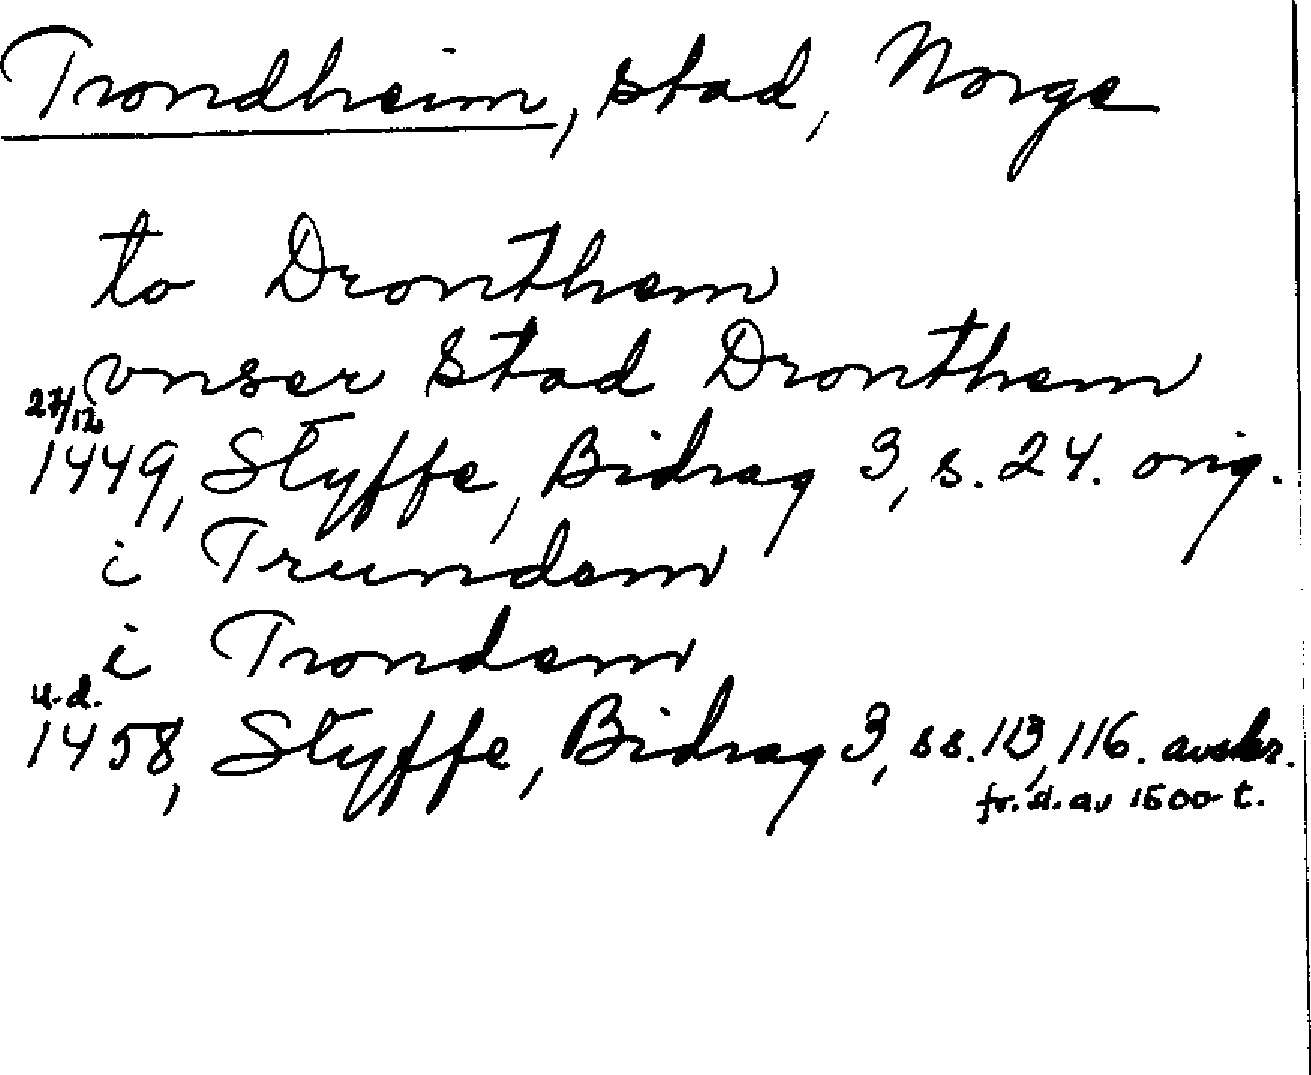 Trondheim, stad, Norge
to Dronthem
vnser stad Dronthem
27/12
1449, Styffe, Bidrag 3, s. 24. orig.
i Trundem
i Trondem
u.d.
1458, Styffe, Bidrag 3, ss. 113, 116. avskr.
fr. d. av 1500-t.